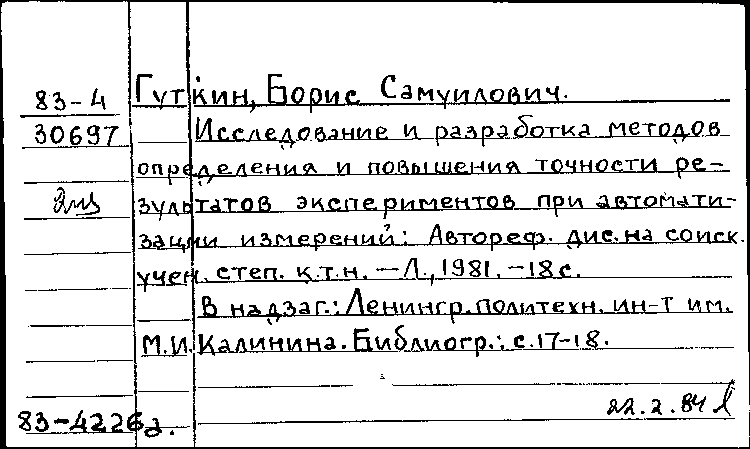 83-4 Гуткин, Борис Самуилович.
30697 Исследование и разработка методов
определения и повышения точности ре-
зультатов экспериментов при автомати-
зации измерений: Автореф. дис. на соиск.
учен. степ. к.т.н. — Л., 1981. - 18 с.
В надзаг.: Ленингр. политехн. ин-т им.
М.И. Калинина. Библиогр.: с. 17-18.
22.2.84
83-4226а.